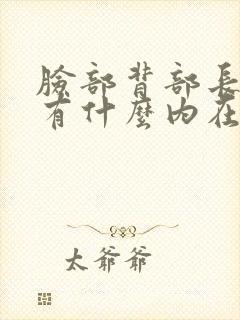 臉部背部長
有什麼內在
太爺爺